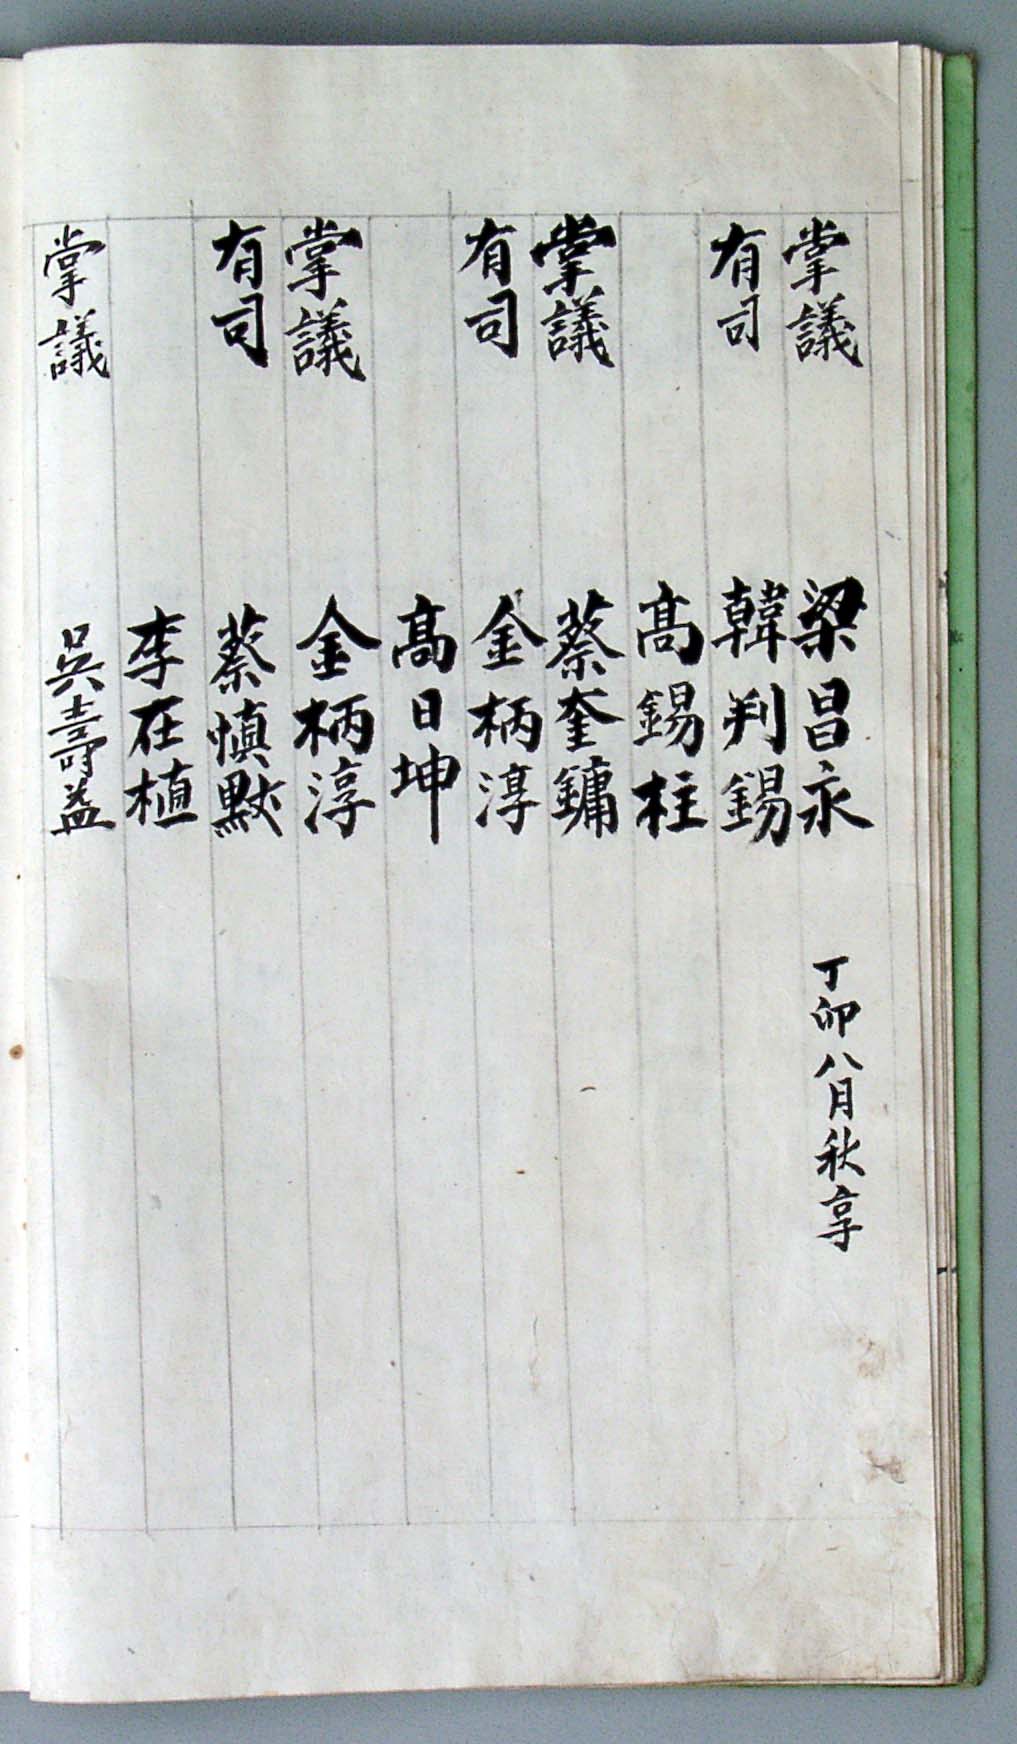 掌議 梁昌永 丁卯八月秋享
有司 韓判錫
高錫柱
掌議 蔡奎鏞
有司 金柄淳
高日坤
掌議 金柄淳
有司 蔡愼默
李在植
掌議 吳壽益